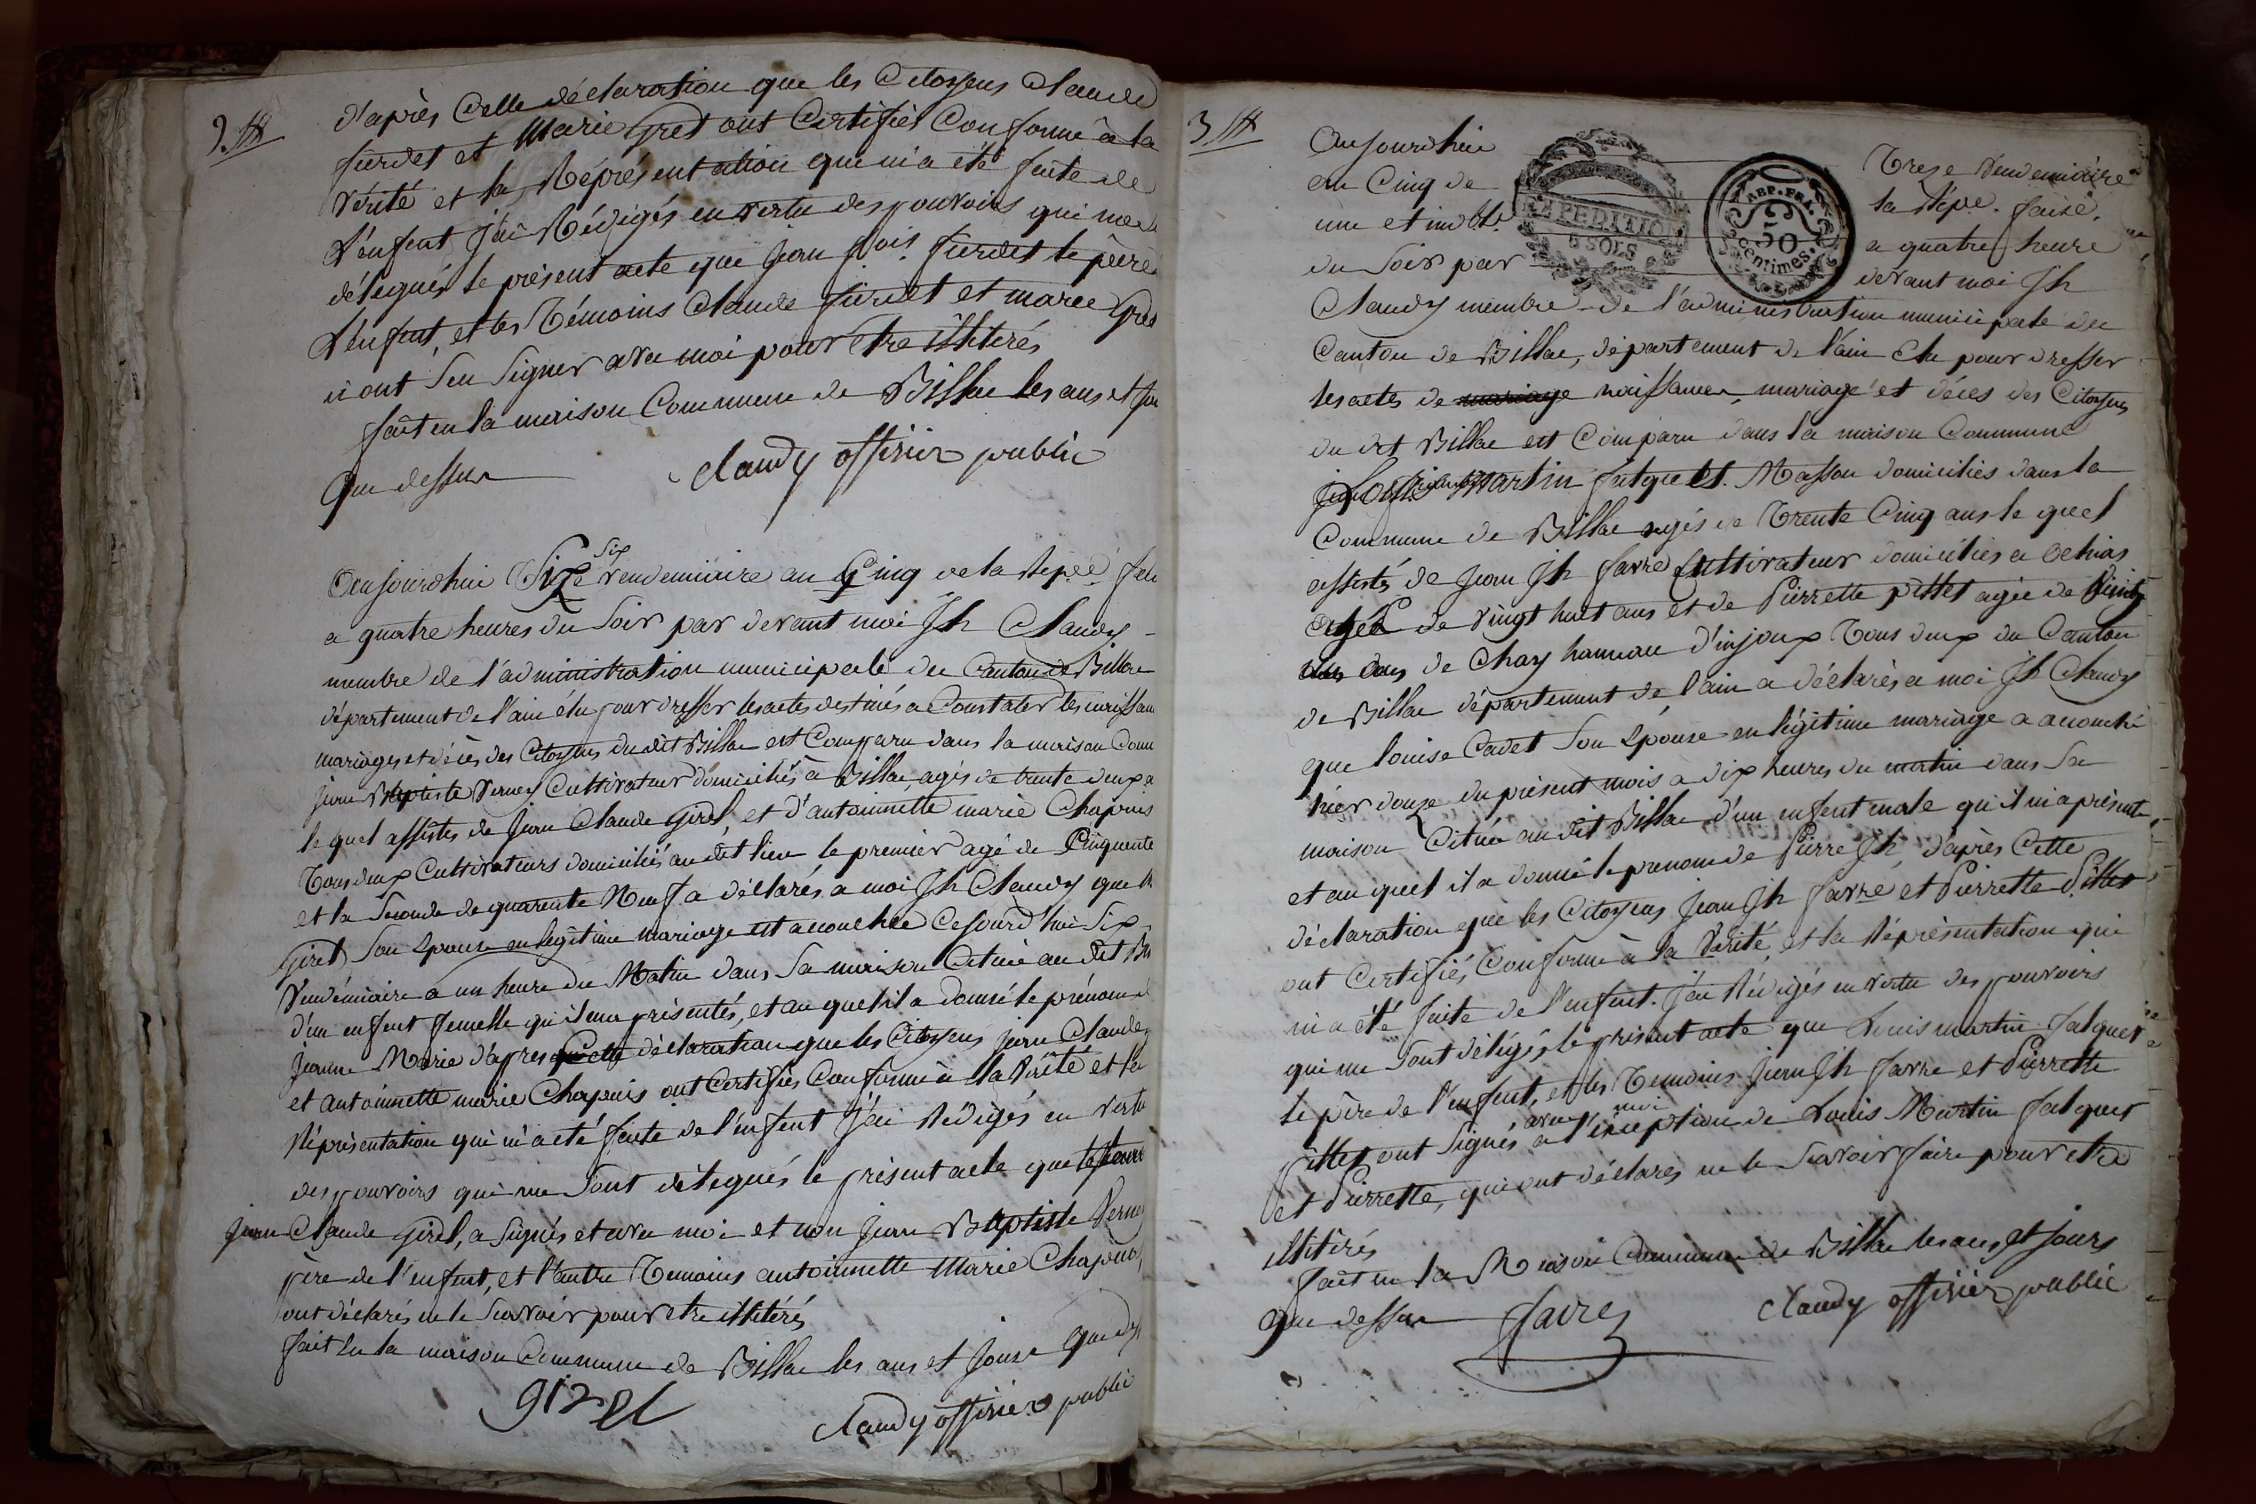 d'après Cette déclaration que les Citoyens Claude
furdet et Marie Gret ont Certifiés Conforme à la
vérité et la Réprésentation qui m'a été faite de
L'enfent j'ai Rédigés en vertu des pouvoirs qui me
délégués le présent acte que jean fois. furdet le père
L'enfent, et les Témoins Claude furdet et marie Gret
n'ont Seu Signer avec moi pour être illitirés
fait en la maison Commune de Billiae les ans et jou
que dessus
Claudy officier public
Aujourdhui Six vendemiaire an Cinq de la Répe.
a quatre heures du Soir par devant moi Jh Claudy
membre de l'administration municipale du Canton de Billiae
département de l'ain élu pour dresser les actes destinés a Constater les naissan
mariages et décès des Citoyens du dit Billiae est Comparu dans la maison Com
jean Baptiste Verney Cultivateur domiciliés à Billiae, agés de trente deux a
le quel assistés de Jean Claude Girel, et d'antoinnette marie Chapuis
Tous deux Cultivateurs domiciliés au dit lieu le premier agé de Cinquente
et la Seconde de quarente Neuf a déclarés a moi Jh Claudy que
Girel Son Epouse en légitime mariage est acouchée Cejourd'hui Six
Vendémiaire a un heure du Matin dans Sa maison Cituée au dit Bi
d'un enfent femelle qu'il m'a présentés, et au quel il a donné le prénom d
Jeanne Marie d'après Cette déclaration que les Citoyens jean Claude
et antoinnette marie Chapuis ont Certifiés Conforme à la Vérité et la
Réprésentation qui m'a été faite de l'enfent j'ai Rédigés en vertu
des pouvoirs qui me Sont délégués le présent acte que
jean Claude Girel, a Signés et avec moi et non jean Baptiste Verney
père de l'enfent, et l'autre Témoins antoinnette Marie Chapuis
ont déclarés ne le Scavoir pour etre illitérés
fait en la maison Commune de Billiae les ans et Jours que de
girel
Claudy officier public
3
Aujourdhui Treze Vendemiaire
an Cinq de la Répe. faise.
une et indble. a quatre heure
du Soir par devant moi Jh
EXPEDITION
5 SOLS
REP. FRA.
50
centimes.
Claudy membre de l'administration municipale du
Canton de Billiae, département de l'ain élu pour dresser
les actes de mariage naissances, mariage et décès des Citoyens
du dit Billiae est Comparu dans la maison Commune
Martin falquet Masson domiciliés dans la
Commune de Billiae agés de Trente Cinq ans le quel
assistés de Jean Jh favre Cultivateur domiciliés a Ochias
agés de vingt huit ans et de Pierrette pittet agée de Vingt
ans de Chay hameau d'injoux Tous deux du Canton
de Billiae département de l'ain a déclarés a moi Jh Claudy
que louise Cadet Son Epouse en légitime mariage a acouché
hier douze du présent mois a dix heures du matin dans Sa
maison Cituée au dit Billiae d'un enfent male qu'il m'a présenté
et au quel il a donné le prenom de Pierre Jh, d'après Cette
déclaration que les Citoyens Jean Jh favre et Pierrette Pittet
ont Certifiés Conforme à la Vérité, et la Réprésentation qui
m'a été faite de l'enfent. j'ai Rédigés en vertu des pouvoirs
qui me Sont délégés le présent acte que Louis martin falquet
le père de l'enfent, et les Témoins Jean Jh favre et Pierrette
Pittet ont Signés avec moi a l'exception de Louis Martin falquet
et Pierrette, qui ont déclarés ne le Scavoir faire pour etre
illitirés
fait en la Maison Commune de Billiae les ans et Jours
que dessus
favre
Claudy officier public